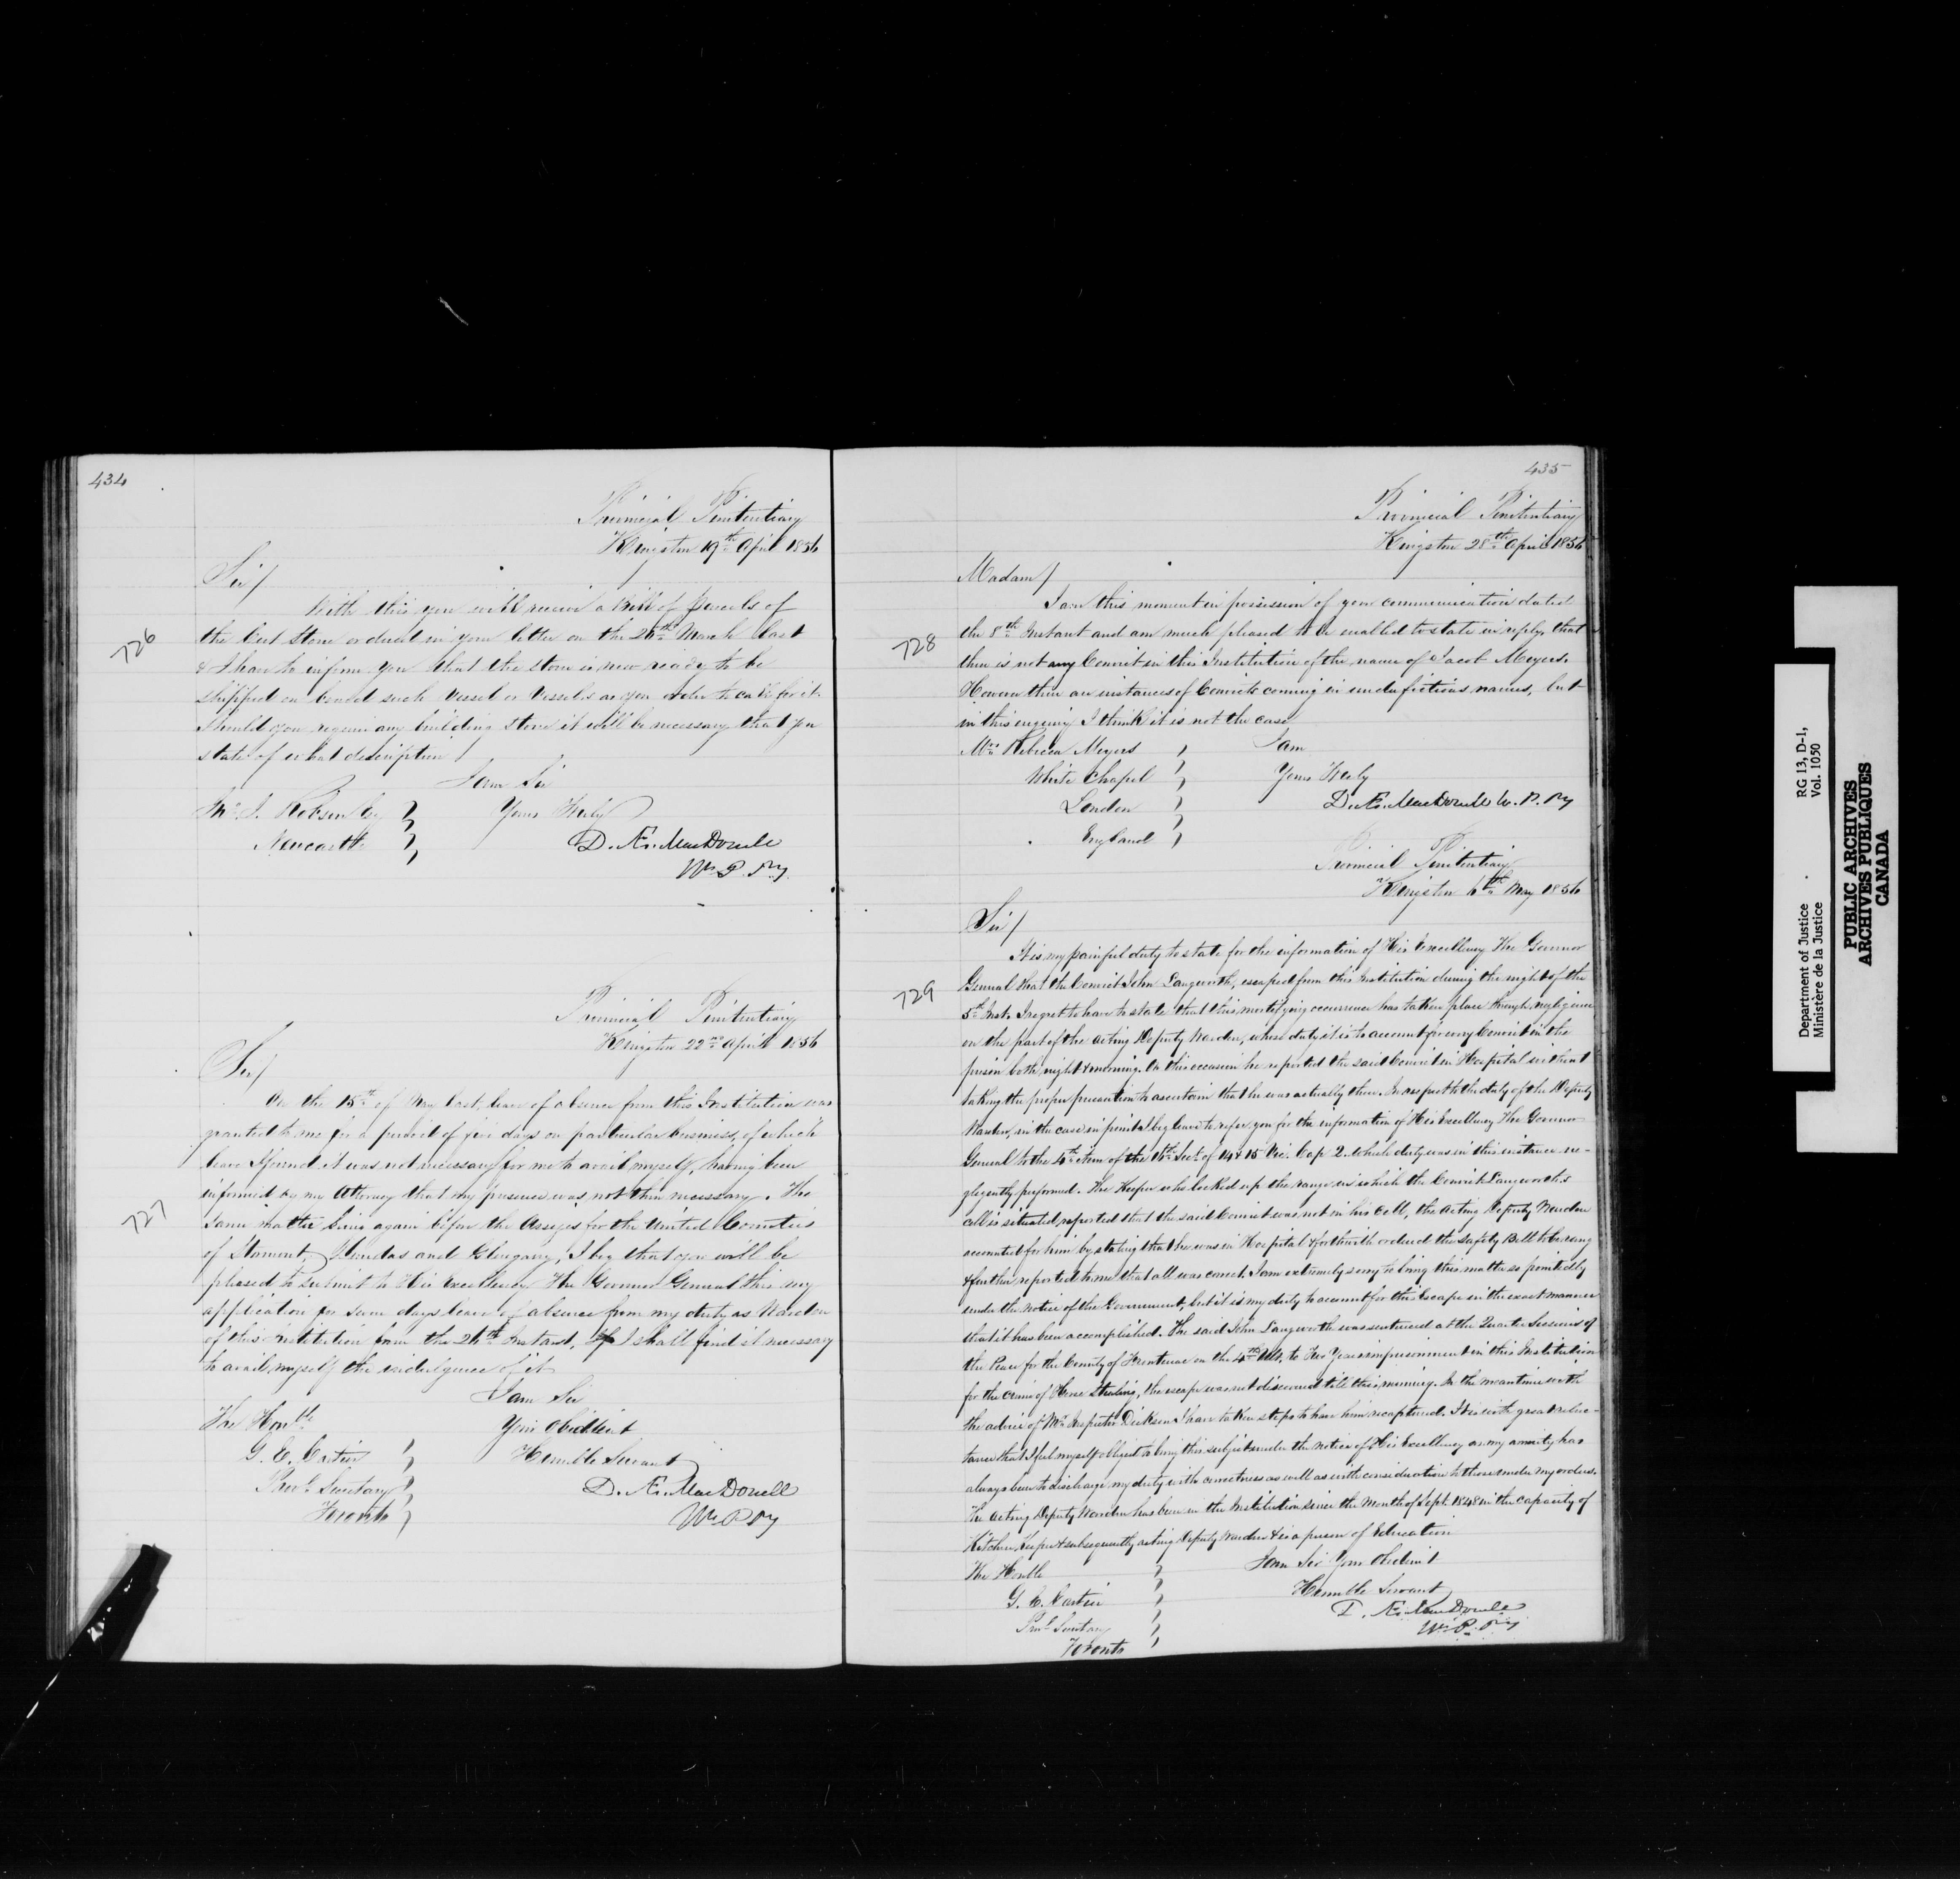 434
Provincial Penitentiary
Kingston 19th April 1856
Sir/
With this you will receive a Bill of Parcels of
726
the Cut Stone ordered in your letter on the 26th March last
& I have to inform you that the stone is now ready to be
shipped on board such Vessel or Vessels as you order to call for it.
Should you require any building stone it will be necessary that you
state of what description /
I am Sir
J. Robson Esq
Yours Truly
Newcastle
D. Æ. MacDonell
Wn. P. Py
Provincial Penitentiary
Kingston 22nd April 1856
Sir/
On the 15th of May last, leave of absence from this Institution was
granted to me for a period of five days on particular business, of which
leave I found it was not necessary for me to avail myself, having been
informed by my Attorney that my presence was not then necessary. The
727
same matter being again before the Assizes for the United Counties
of Stormont, Dundas and Glengary, I beg that you will be
pleased to submit to His Excellency The Governor General this my
application for seven days leave of absence from my duty as Warden
of this Institution from the 26th Instant, If I shall find it necessary
to avail myself the indulgence of it
I am Sir
The Honble
Your Obedient
G. E. Cartier
Humble Servant
Provl. Secretary
D. Æ. MacDonell
Toronto
Wn. P. Py
435
Provincial Penitentiary
Kingston 28th April 1856
Madam/
I am this moment in possession of your communication dated
728
the 8th Instant and am much pleased to be enabled to state in reply, that
there is not any Convict in this Institution of the name of Jacob Meyers.
However there are instances of Convicts coming in under fictious names, but
in this enquiry I think it is not the case
Mrs Rebecca Meyers
I am
White Chapel
Yours Truly
London
D. Æ. MacDonell W. P. Py
England
Provincial Penitentiary
Kingston 6th May 1856
Sir/
It is my painful duty to state for the information of His Excellency The Governor
General that the Convict John Langworth, escaped from this Institution during the night of the
729
5th Inst. I regret to have to state that this mortifying occurrence has taken place through negligence
on the part of the acting Deputy Warden, whose duty it is to account for every Convict in the
prison both night & morning. On this occasion he reported the said Convict in Hospital without
taking the proper precaution to ascertain that he was actually there. In respect to the duty of the Deputy
Warden, in the case in point I beg leave to refer you for the information of His Excellency The Governor
General to the 4th item of the 16th Sect. of 14 & 15 Vic. Cap 2. which duty was in this instance ne-
glegently preformed. The Keeper who locked up the range in which the Convict Langworth's
cell is situated, reported that the said Convict was not in his Cell, the Acting Deputy Warden
accounted for him by stating that he was in Hospital & forthwith ordered the safety Bell to be rung
& further reported to me that all was correct. I am extremely sorry to bring this matter so pointedly
under the notice of the Government, but it is my duty to account for this Escape in the exact manner
that it has been accomplished. The said John Langworth was sentenced at the Quarter Sessions of
the Peace for the County of Frontenac on the 4th Ult. to Two Years imprisonment in this Institution
for the crime of Horse Stealing, the escape was not discovered till this morning. In the meantime with
the advice of Mr Inspector Dickson I have taken steps to have him recaptured. It is with great reluc-
tance that I feel myself obliged to bring this subject under the notice of His Excellency as my anxiety has
always been to discharge my duty with correctness as well as with consideration to those under my orders.
The acting Deputy Warden has been in the Institution since the Month of Sept. 1848 in the capacity of
Kitchen Keeper & subsequently acting Deputy Warden & is a person of Education
The Honble
I am Sir Your Obedient
G. E. Cartier
Humble Servant
Provl. Secretary
D. Æ. MacDonell
Toronto
Wn. P. Py
Department of Justice
Ministère de la Justice
RG 13, D-1,
Vol. 1050
PUBLIC ARCHIVES
ARCHIVES PUBLIQUES
CANADA